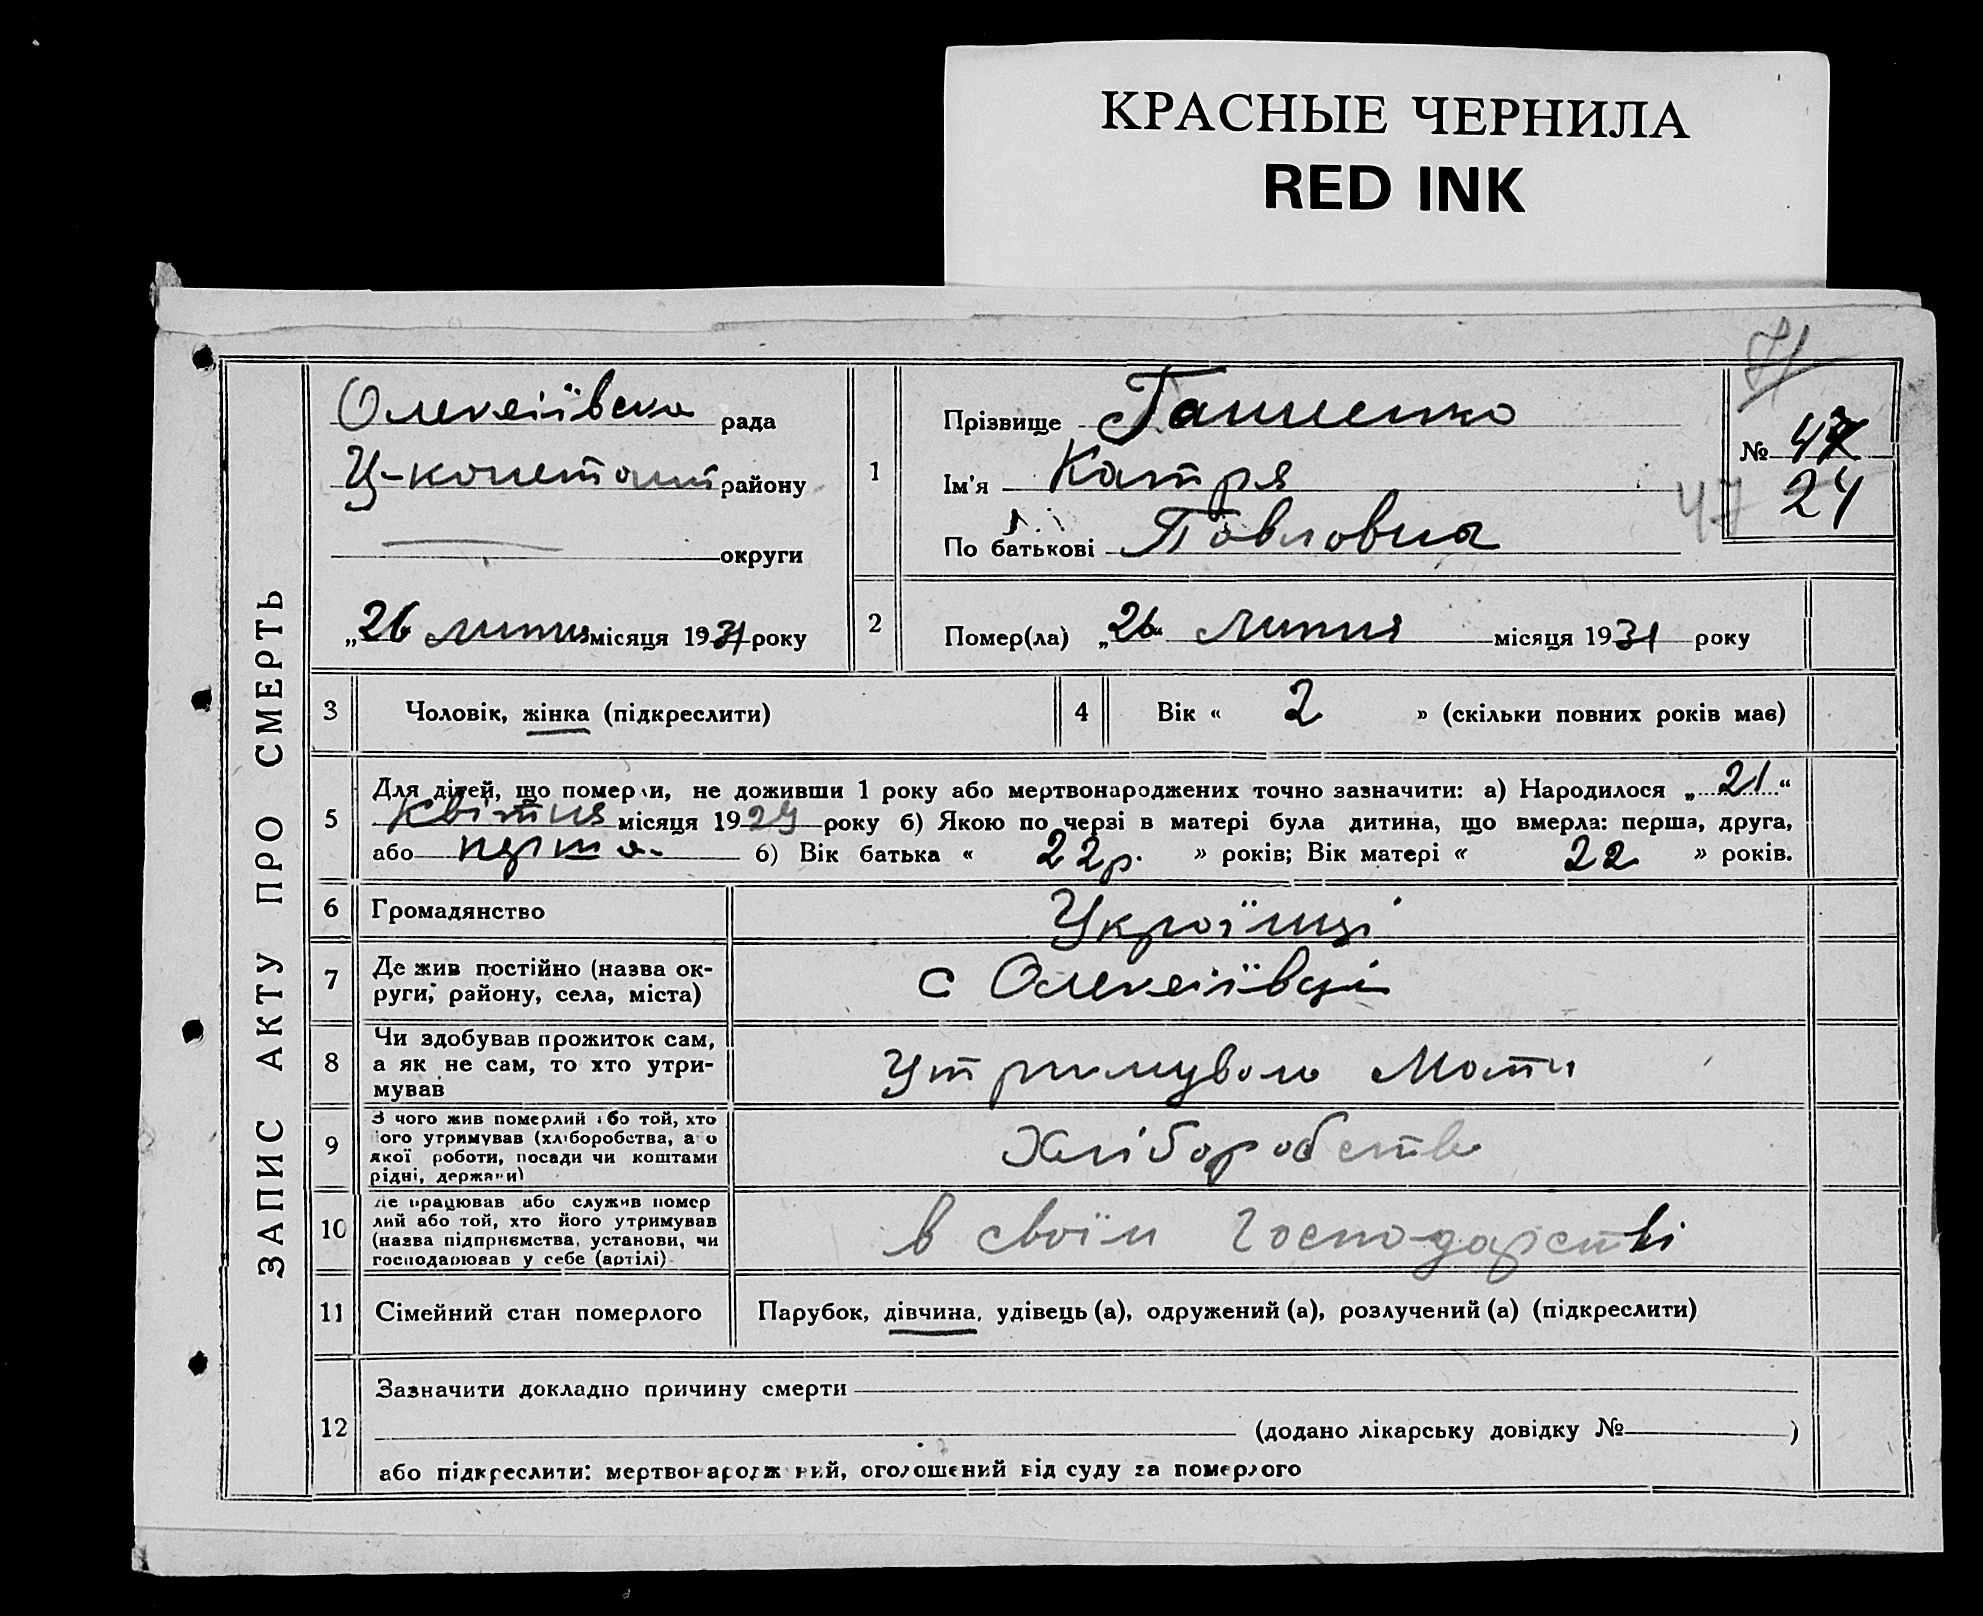 КРАСНЫЕ ЧЕРНИЛА
RED INK
ЗАПИС АКТУ ПРО СМЕРТЬ
Олексіївська рада
району
округи
„26 липня місяця 1931 року
1
Прізвище
Ім'я Катря
По батькові Павловна
№ 47
24
47
71
2
Помер(ла) „26 липня місяця 1931 року
3 Чоловік, жінка (підкреслити)
4 Вік « 2 » (скільки повних років має)
5
Для дітей, що померли, не доживши 1 року або мертвонароджених точно зазначити: а) Народилося „21“
квітня місяця 1929 року б) Якою по черзі в матері була дитина, що вмерла: перша, друга,
або перша б) Вік батька « 22 р. » років; Вік матері « 22 » років.
6 Громадянство Україпці
7
Де жив постійно (назва ок-
руги, району, села, міста)
с Олексіївці
8
Чи здобував прожиток сам,
а як не сам, то хто утри-
мував
Утримувала Мати
9
З чого жив померлий або той, хто
його утримував (хліборобства, або
якої роботи, посади чи коштами
рідні, держави)
Хліборобств
10
Де працював або служив помер
лий або той, хто його утримував
(назва підприємства, установи, чи
господарював у себе (артілі)
в своїм господарстві
11 Сімейний стан померлого Парубок, дівчина, удівець (а), одружений (а), розлучений (а) (підкреслити)
12
Зазначити докладно причину смерти
(додано лікарську довідку № )
або підкреслити: мертвонароджений, оголошений від суду за померлого